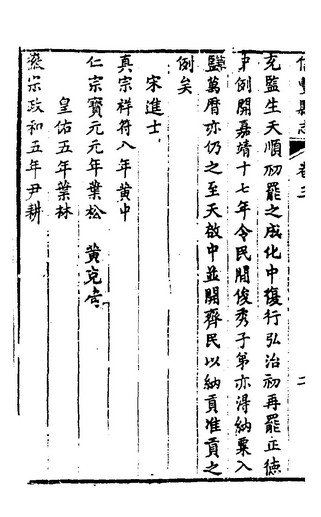 信豐縣志 卷三 二
充監生天順初罷之成化中復行弘治初再罷正德
中例開嘉靖十七年令民間俊秀子弟亦得納粟入
監萬曆亦仍之至天啟中並開齊民以納貢准貢之
例矣
宋進士
真宗祥符八年黄中
仁宗寳元元年葉松 黄克
皇佑五年葉林
徽宗政和五年尹耕